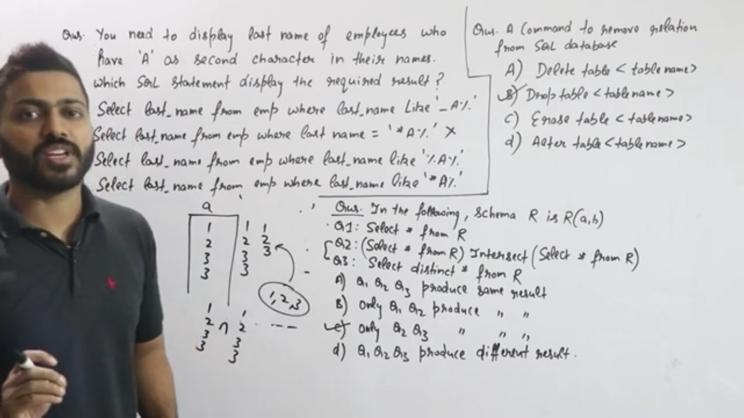 Ques. You need to display last name of employees who
have 'A' as second character in their names.
which SQL statement display the required result?
Select last_name from emp where last_name Like '_A%'
Select last_name from emp where last name = '*A%' X
Select last_name from emp where last_name like '%A%'
Select last_name from emp where last_name like '*A%'
Ques. A Command to remove relation
from SQL database
A) Delete table <table name>
B) Drop table <table name>
C) Erase table <table name>
d) Alter table <table name>
a
1
2
3
3
1 1
2 2
3 3
3
1,2,3
1 1
2 ∩ 2 ----
3 3
3 3
Ques. In the following, schema R is R(a,b)
Q1: Select * from R
Q2: (Select * from R) Intersect (Select * from R)
Q3: Select distinct * from R
A) Q1 Q2 Q3 produce same result
B) only Q1 Q2 produce " "
c) only Q2 Q3 " " "
d) Q1 Q2 Q3 produce different result.